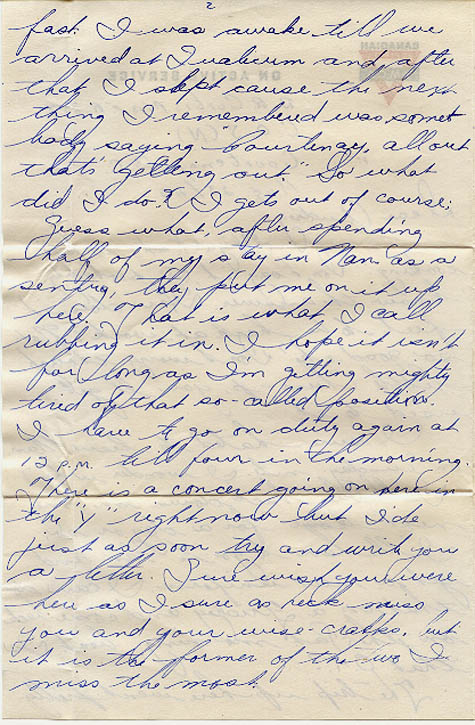 2
fast. I was awake till we
arrived at Qualicum and after
that I slept cause the next
thing I remembered was some
body saying "Courtenay, all out
that's getting out." So what
did I do? I gets out of course;
Guess what, after spending
half of my stay in Nan. as a
sentry, they put me on it up
here. That is what I call
rubbing it in. I hope it isn't
for long as I'm getting mighty
tired of that so-called position.
I have to go on duty again at
12 p.m. till four in the morning.
There is a concert going on here in
the "Y" right now but I'de
just as soon try and write you
a letter. Sure wish you were
here as I sure as heck miss
you and your wise-cracks, but
it is the former of the two I
miss the most.
CANADIAN
ON ACTIVE SERVICE